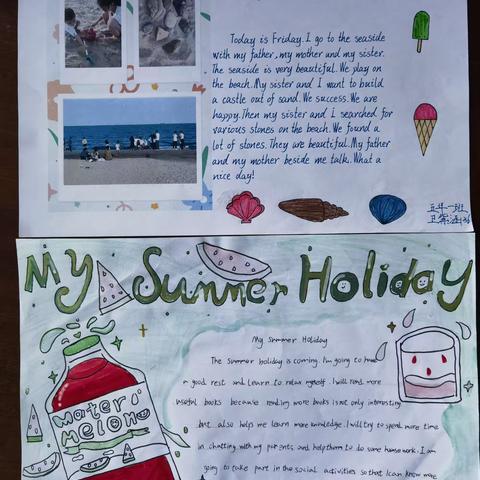 Today is Friday. I go to the seaside
with my father, my mother and my sister.
The seaside is very beautiful. We play on
the beach. My sister and I want to build
a castle out of sand. We success. We are
happy. Then my sister and i searched for
various stones on the beach. We found a
lot of stones. They are beautiful. My father
and my mother beside me talk. What a
nice day!
五年一班
My Summer Holiday
My Summer Holiday
The Summer holiday is coming. I'm going to have
a good rest and learn to relax myself. I will read more
useful books because reading more books is not only interesting
but also help me learn more knowledge. I will try to spend more time
in chatting with my parents and help them to do some housework. I am
going to take part in the social activities so that I can know more
Water
Melone